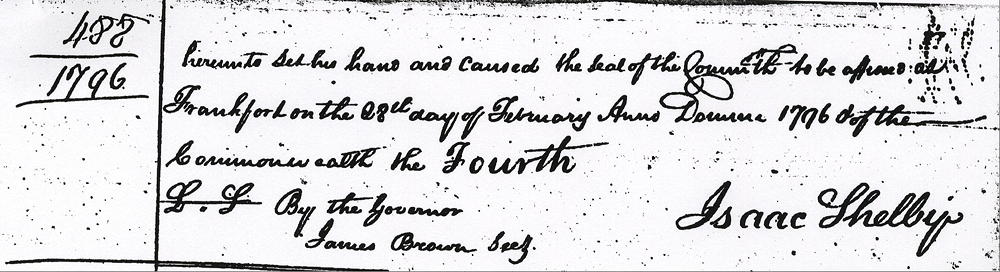 488
1796
hereunto set his hand and caused the seal of the Commth to be affixed at
Frankfort on the 28th day of February Anno Domine 1796 & of the
Commonwealth the Fourth
L. S By the Governor
Isaac Shelby
James Brown Secy.